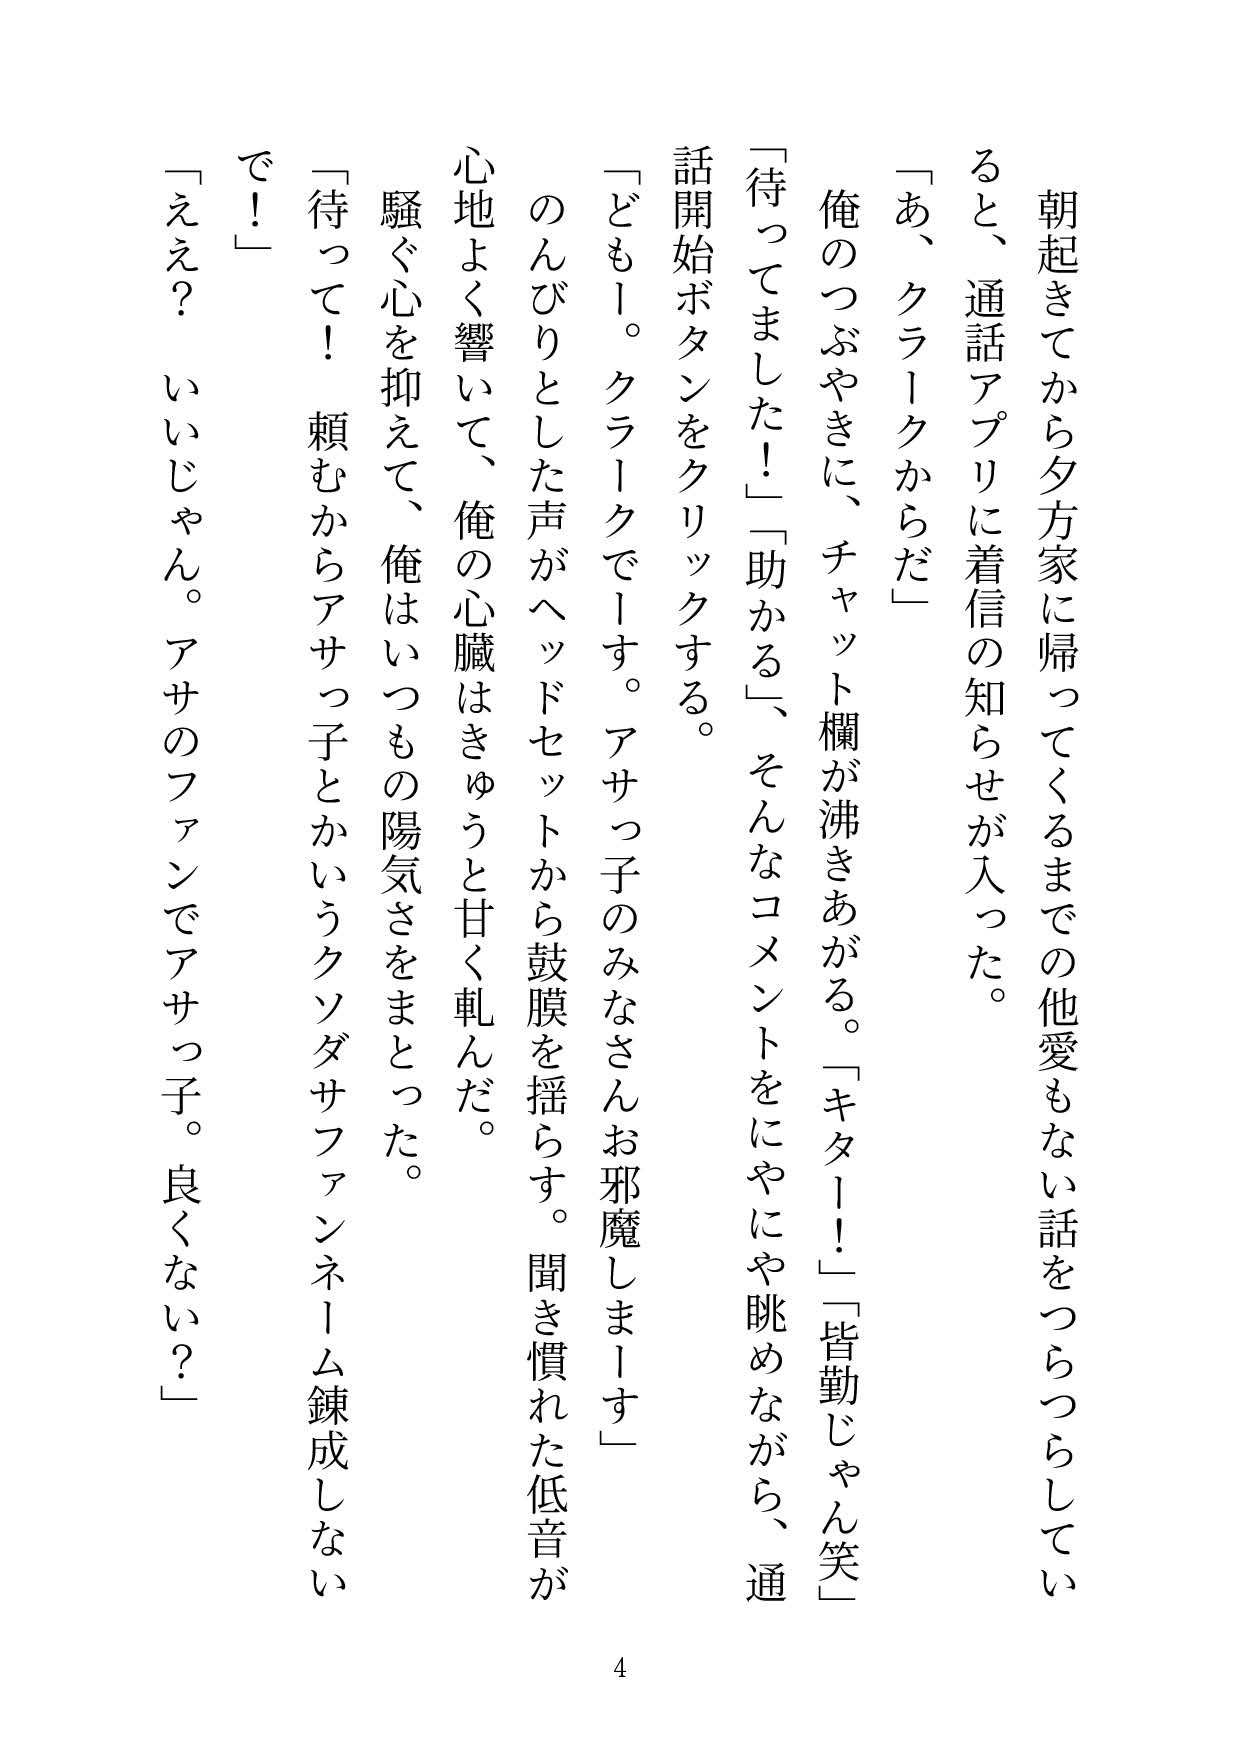 朝起きてから夕方家に帰ってくるまでの他愛もない話をつらつらしてい
ると、通話アプリに着信の知らせが入った。
「あ、クラークからだ」
　俺のつぶやきに、チャット欄が沸きあがる。「キター！」「皆勤じゃん笑」
「待ってました！」「助かる」、そんなコメントをにやにや眺めながら、通
話開始ボタンをクリックする。
「どもー。クラークでーす。アサっ子のみなさんお邪魔しまーす」
　のんびりとした声がヘッドセットから鼓膜を揺らす。聞き慣れた低音が
心地よく響いて、俺の心臓はきゅうと甘く軋んだ。
　騒ぐ心を抑えて、俺はいつもの陽気さをまとった。
「待って！　頼むからアサっ子とかいうクソダサファンネーム錬成しない
で！」
「ええ？　いいじゃん。アサのファンでアサっ子。良くない？」
4